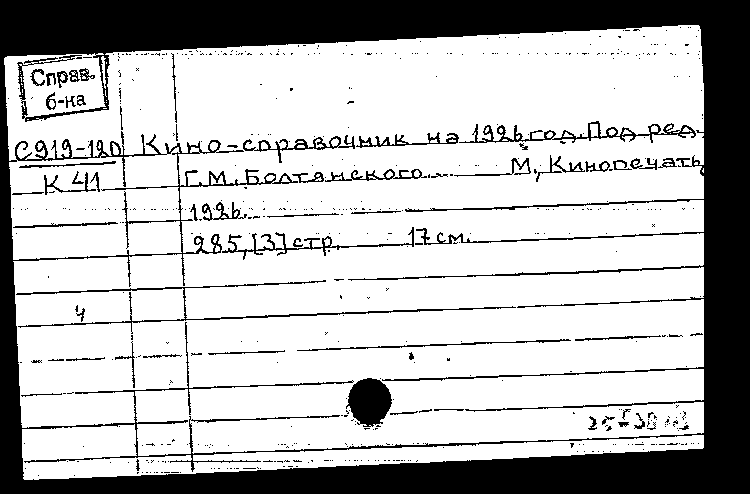 Справ.
б-на
С919-120
Кино-справочник на 1926 год. Под ред.
К 41
Г.М. Болтянского. М, Кинопечать,
1926.
285, [3] стр. 17 см.
4